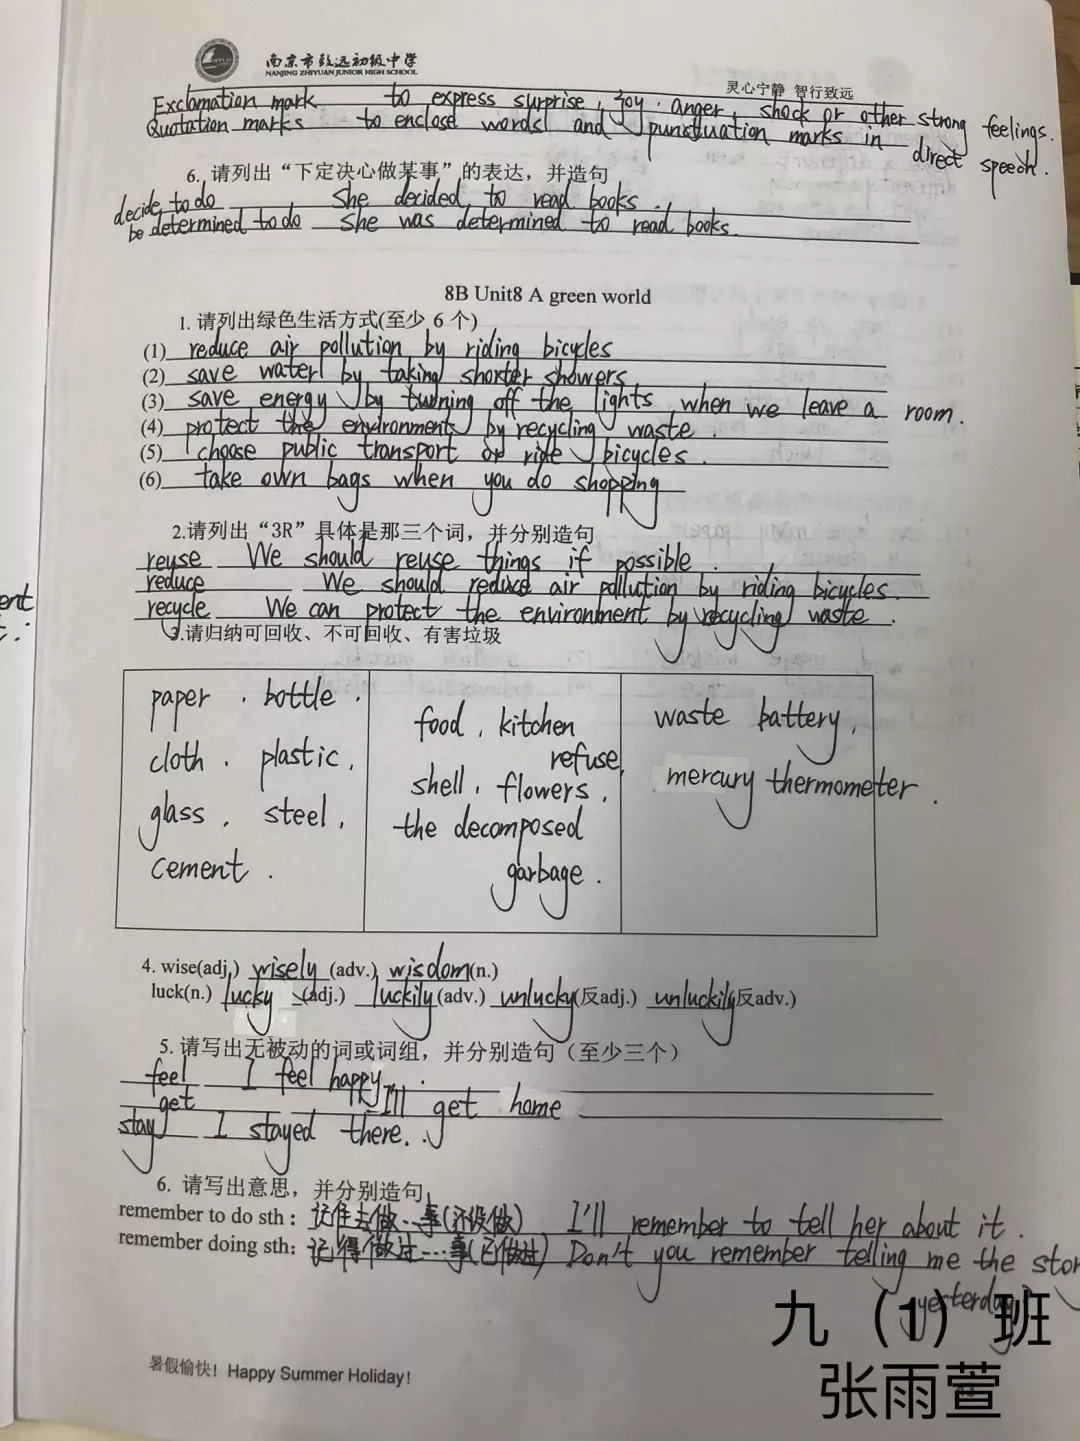 南京市致远初级中学
NANJING ZHIYUAN JUNIOR HIGH SCHOOL
灵心宁静 智行致远
Exclamation mark to express surprise, joy. anger, shock or other strong feelings.
Quotation marks to enclose words and punstuation marks in direct speech.
6. 请列出“下定决心做某事”的表达，并造句
decide to do She decided to read books.
be determined to do She was determined to read books.
8B Unit8 A green world
1. 请列出绿色生活方式(至少 6 个)
(1) reduce air pollution by riding bicycles
(2) save water by taking shorter showers
(3) save energy by turning off the lights when we leave a room.
(4) protect the environment by recycling waste.
(5) choose public transport or ride bicycles.
(6) take own bags when you do shopping
2.请列出“3R”具体是那三个词，并分别造句
reuse We should reuse things if possible.
reduce We should reduce air pollution by riding bicycles.
recycle We can protect the environment by recycling waste.
3.请归纳可回收、不可回收、有害垃圾
paper. bottle.
cloth. plastic.
glass. steel.
cement.
food. kitchen
refuse.
shell. flowers.
the decomposed
garbage.
waste battery.
mercury thermometer.
4. wise(adj.) wisely (adv.) wisdom(n.)
luck(n.) lucky (adj.) luckily(adv.) unlucky(反adj.) unluckily反adv.)
5. 请写出无被动的词或词组，并分别造句（至少三个）
feel I feel happy.
get I'll get home
stay I stayed there.
6. 请写出意思，并分别造句
remember to do sth: 记住去做…事(还没做) I'll remember to tell her about it.
remember doing sth: 记得做过…事(已做过) Don't you remember telling me the stor
yesterday?
暑假愉快! Happy Summer Holiday!
九（1）班
张雨萱
ent